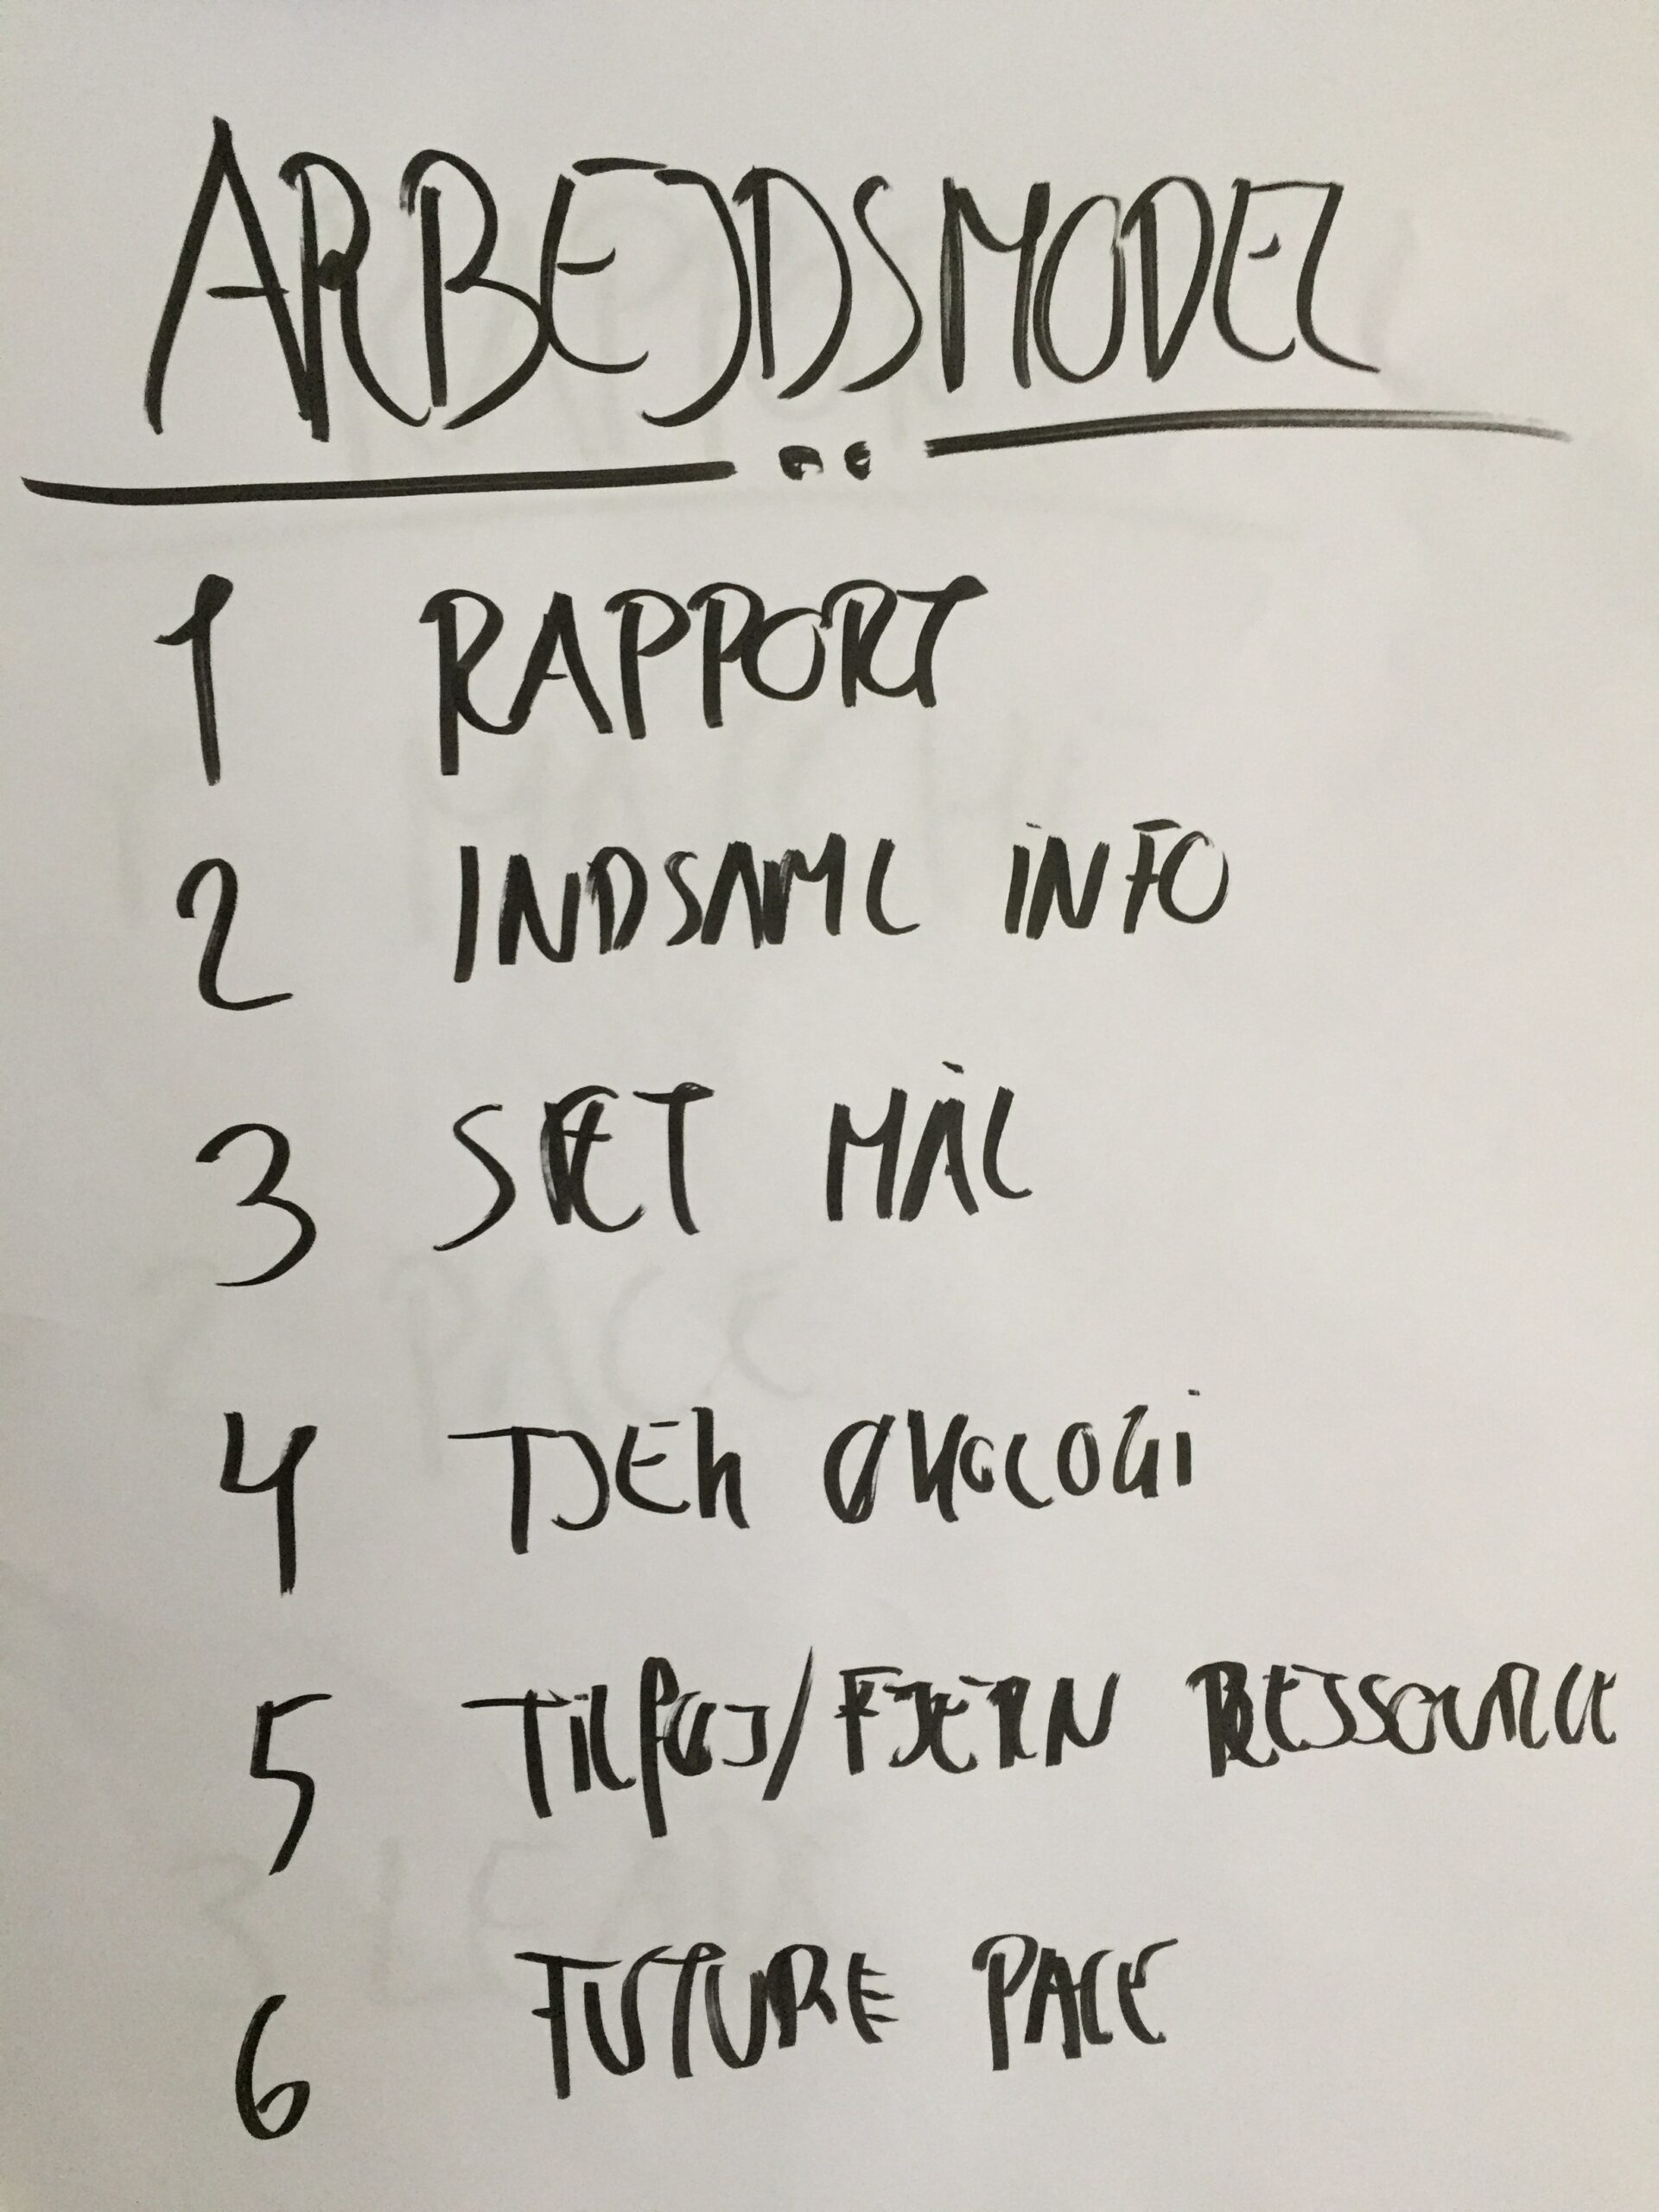 ARBEJDSMODEL
1 RAPPORT
2 INDSAML INFO
3 SÆT MÅL
4 TJEK ØKOLOGI
5 TILFØJ/FJERN RESSOURCE
6 FUTURE PACE